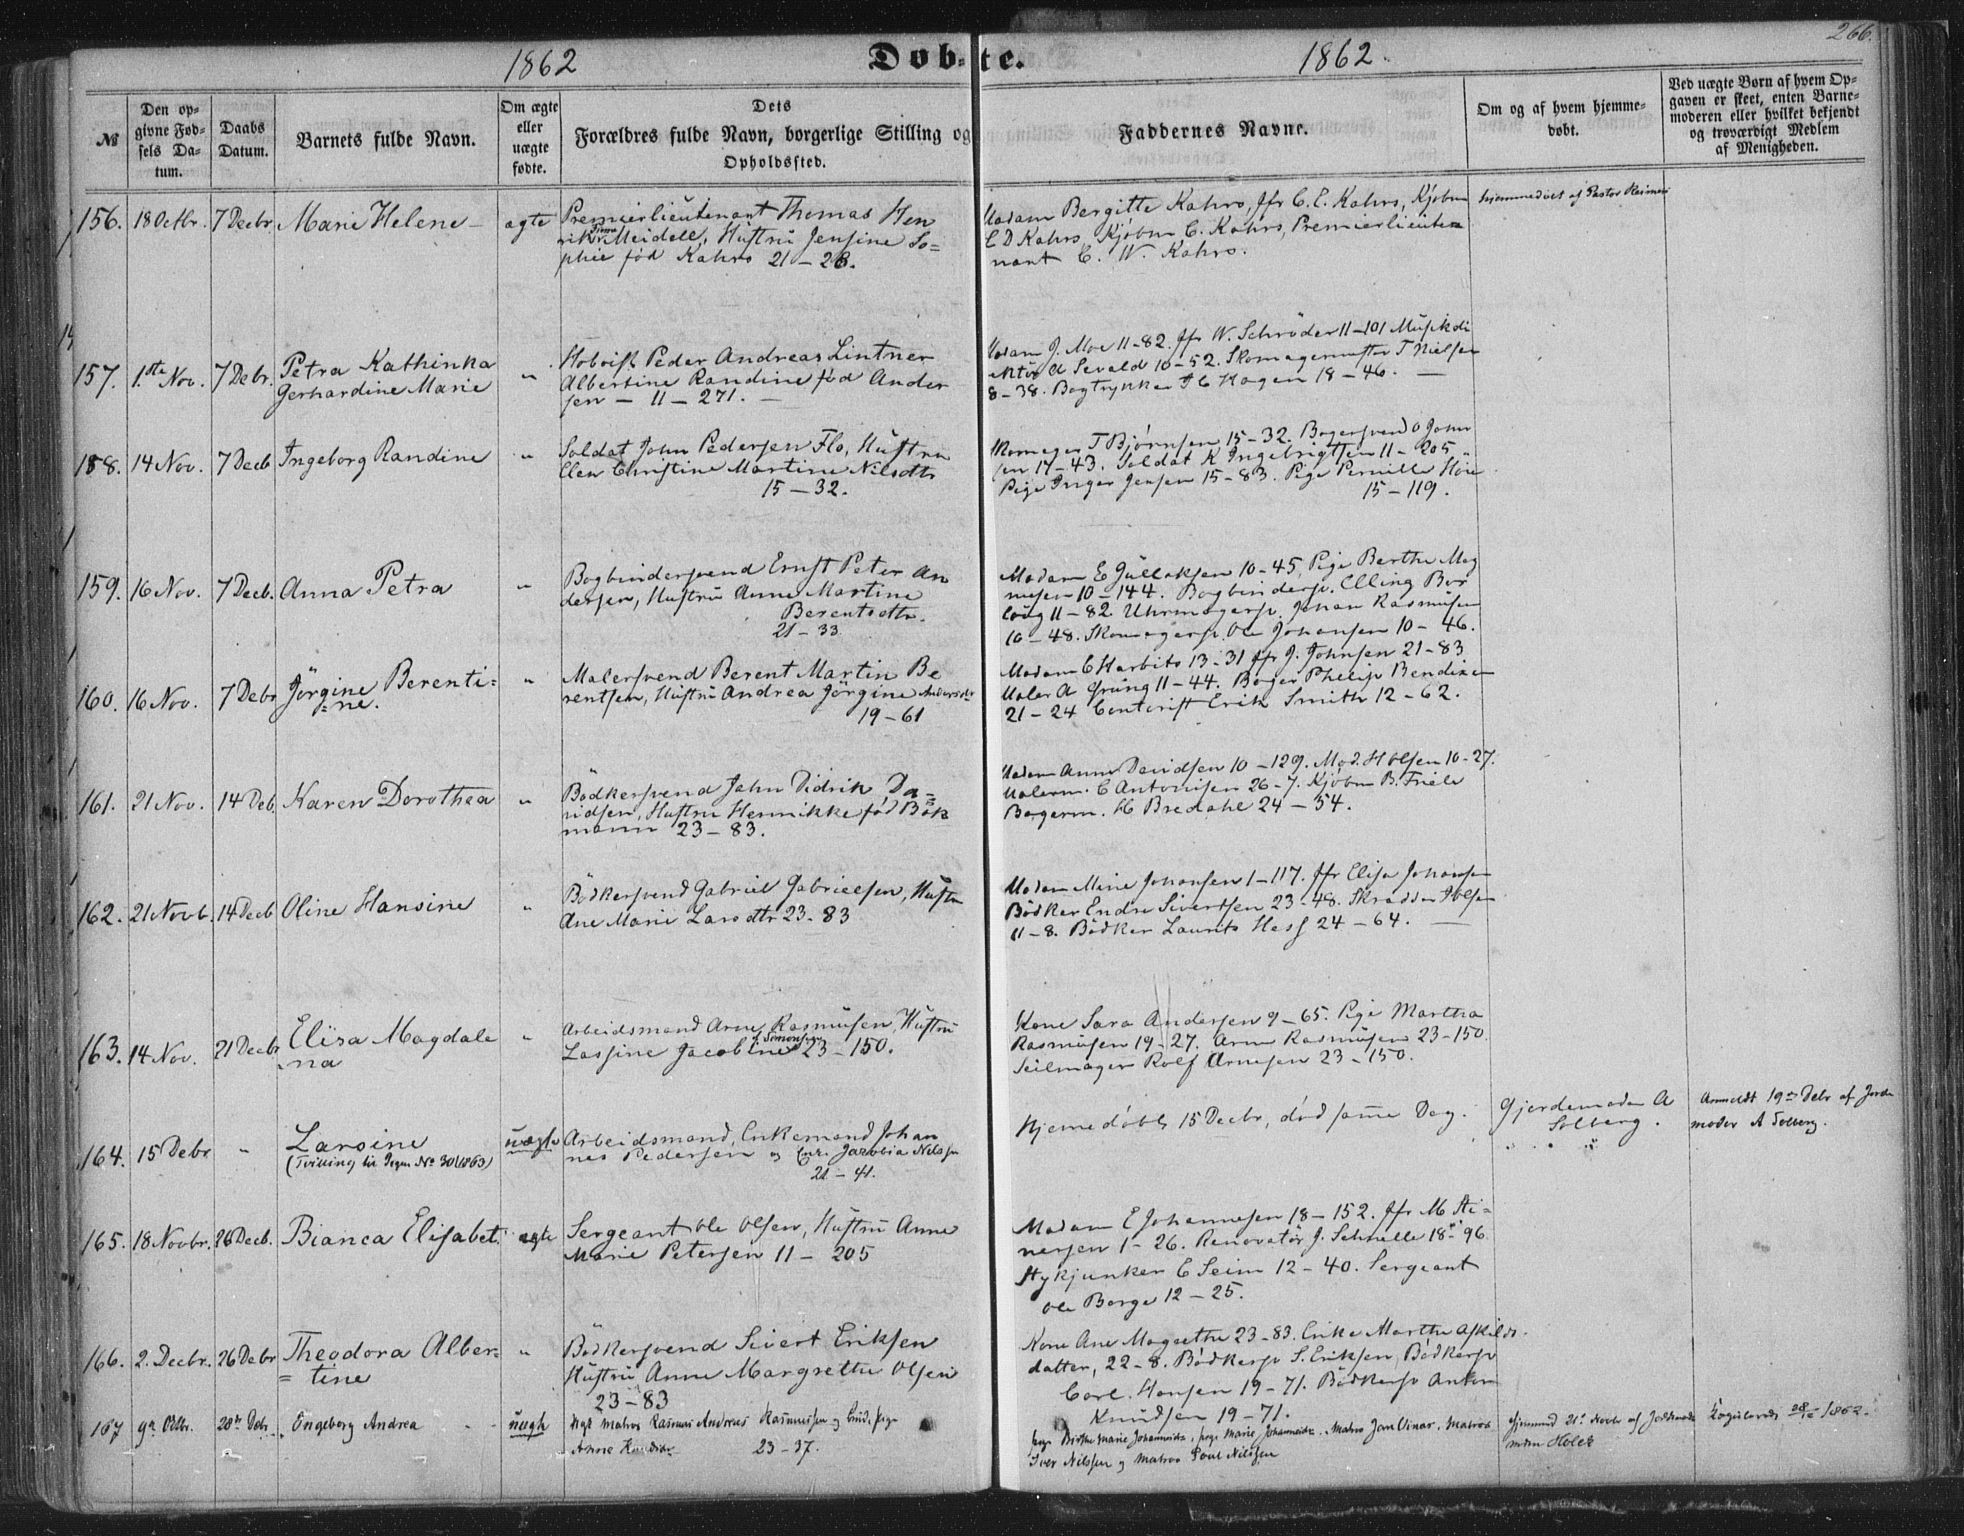 266.
1862 Døb-te. 1862.
№ Den opgivne Fødsels Datum. Daabs Datum. Barnets fulde Navn. Om ægte eller uægte fødte. Dets Forældres fulde Navn, borgerlige Stilling og Opholdssted. Faddernes Navne. Om og af hvem hjemmedøbt. Ved uægte Børn af hvem Opgaven er skeet, enten Barnemoderen eller hvilket bekjendt og troværdigt Medlem af Menigheden.
156. 18 Octbr. 7 Decbr. Marie Helene – ægte Premierlieutenant Thomas Hen
rik Meidell, Hustru Jensine So=
phie fød Kahrs 21 – 28.
Madam Bergitte Kahrs, Jfr C. E. Kahrs, Kjøbm
C D Kahrs Kjøbm C. Kahrs, Premierlieute
nant C. W. Kahrs.
hjemmedøbt af Pastor
157. 1ste Nov. 7 Debr. Petra Kathinka
Gerhardine Marie
" Hoboist Peder Andreas Lintner
Albertine Randine fød Ander
sen – 11 – 271. –
Madam J. Moe 11-82. Jfr W. Schrøder 11-101 Musikdi
rektør A Sevald 10-52. Skomagermester T Nielsen
8-38. Bogtrykker Hagen 18-46. –
158. 14 Nov. 7 Decb Ingeborg Randine " Soldat John Pedersen Flo, Hustru
Elen Christine Martine Nilsdtr
15 – 32.
T Bjørnsen 15-32. Bagersvend O John
sen 17-43. Soldat K Ingebrigtsen 11-205
Pige Inger Jensen 15-83. Pige Pernille
15-119.
159. 16 Nov. 7 Decb. Anna Petra " Bogbindersvend Ernst Peter An
dersen, Hustru Anne Martine
Berentsdtr.
21 – 33
Madam E Gullaksen 10-45, Pige Berthe Mag
nusen 10-144. Bogbindersv. Elling Bor
laug 11-82. Uhrmagersv. Johan Rasmusen
10-48. Skomagersv. Ole Johansen 10-46.
160. 16 Nov. 7 Debr Jörgine Berenti=
=ne.
" Malersvend Berent Martin Be
rentsen, Hustru Andrea Jörgine Andersdtr
19-61
Madam C Harbits 13-31 Jfr J. Johnsen 21-83
Maler A Grung 11-44. Bager Philip Bendixen
21-24 Contorist Erik Smith 12-62.
161. 21 Nov. 14 Deb. Karen Dorothea " Bödkersvend John Didrik Da=
vidsen, Hustru Hennikke fød Bök
mann 23-83.
Madam Anne Davidsen 10-129. Mad. H Olsen 10-27.
Malerm. C Antonisen 26-7. Kjøbm B. Friele
Bagerm. H Bredahl 24-54.
162. 21 Novb. 14 Decb Oline Hansine " Bödkersvend Gabriel Gabrielsen, Hustru
Ane Marie Larsdtr 23-83
Madam Mine Johansen 1-117. Jfr Elisa Johansen
Bödker Endre Sivertsen 23-48. Skrædder I Olsen
11-8. Bödker Laurits Hess 24-64. –
163. 14 Nov. 21 Decbr Elisa Magdale
=na
" Arbeidsmand Arne Rasmusen, Hustru
Lassine Jacobine f. Simonsen 23-150.
Kone Sara Andersen 9-65. Pige Martha
Rasmusen 19-27. Arne Rasmusen 23-150
Seilmager Rolf Arnesen 23-150.
164. 15 Debr " Larsine
(Tvilling til Pigen No 30 1863)
uægte Arbeidsmand, Enkemand Johan
nes Pedersen og Enk. Jacobia Nilssen
21-41.
Hjemedøbt 15 Decbr, død samme Dag.
Gjordemoder A
Solberg.
Anmeldt 19de Debr af Jorde
moder A Solberg.
165. 18 Novbr. 26 Decb. Bianca Elisabet. ægte Sergeant Ole Olsen, Hustru Anne
Marie Petersen 11-205
Madam E Johannesen 18-152. Jfr M Ai=
nersen 1-26. Renovatør J. Schnelle 18-96
Stykjunker C Seim 12-40. Sergeant
Ole Borge 12-25.
166. 2. Decbr. 26 Debr Theodora Alber=
=tine
" Bödkersvend Sivert Eriksen
Hustru Anne Margrethe Olsen
23-83
Kone Ane Magrethe 23-83. Enke Marthe Askilds
datter, 22-8. Bødkersv S. Eriksen, Bødkersv
Carl Hansen 19-71. Bödkersv Anton
Knudsen 19-71.
167 9de Octbr. 28de Debr. Engeborg Andrea uægte Matros Rasmus Andreas Rasmussen og Pige
Anne 23-37.
Pige Birthe Marie Johannesdtr, Pige Marie Johannesdtr, Matros Jan Vinar, Matros
Iver Nilssen og Matros Poul Nilssen
af Jordemoder
Holck
28/12 1862.